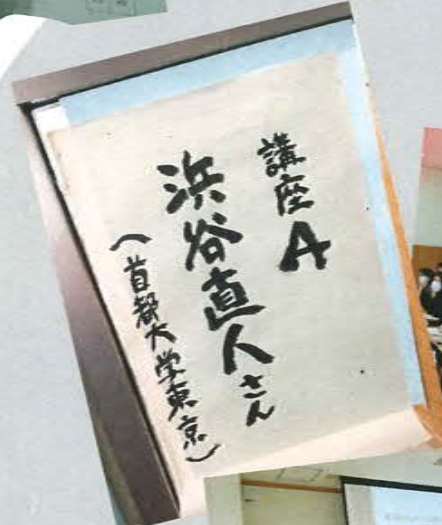 講座A
浜谷直人さん
(首都大学東京)